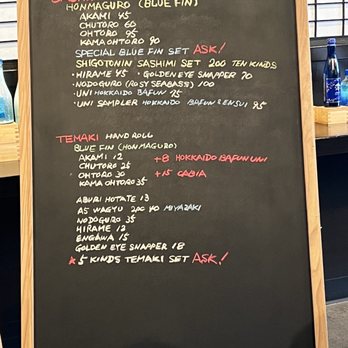 HONMAGURO (BLUE FIN)
AKAMI 45
CHUTORO 60
OHTORO 95
KAMA OHTORO 90
SPECIAL BLUE FIN SET ASK!
SHIGOTONIN SASHIMI SET 200 TEN KINDS
· HIRAME 45 · GOLDEN EYE SNAPPER 70
· NODOGURO (ROSY SEABASS) 100
· UNI HOKKAIDO BAFUN 75
· UNI SAMPLER HOKKAIDO BAFUN & ENSUI 95
TEMAKI HAND ROLL
BLUE FIN (HONMAGURO)
AKAMI 12 +8 HOKKAIDO BAFUN UNI
CHUTORO 25
OHTORO 30 +15 CABIA
KAMA OHTORO 35
ABURI HOTATE 13
A5 WAGYU MIYAZAKI
NODOGURO 35
HIRAME 12
ENGAWA 15
GOLDEN EYE SNAPPER 18
★ 5 KINDS TEMAKI SET ASK!